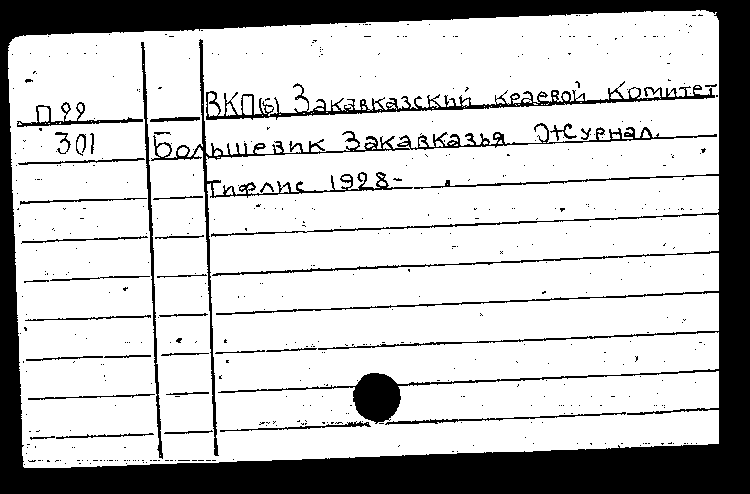 П 99 ВКП(б) Закавказский краевой Комитет
301 Большевик Закавказья. Журнал.
Тифлис 1928-